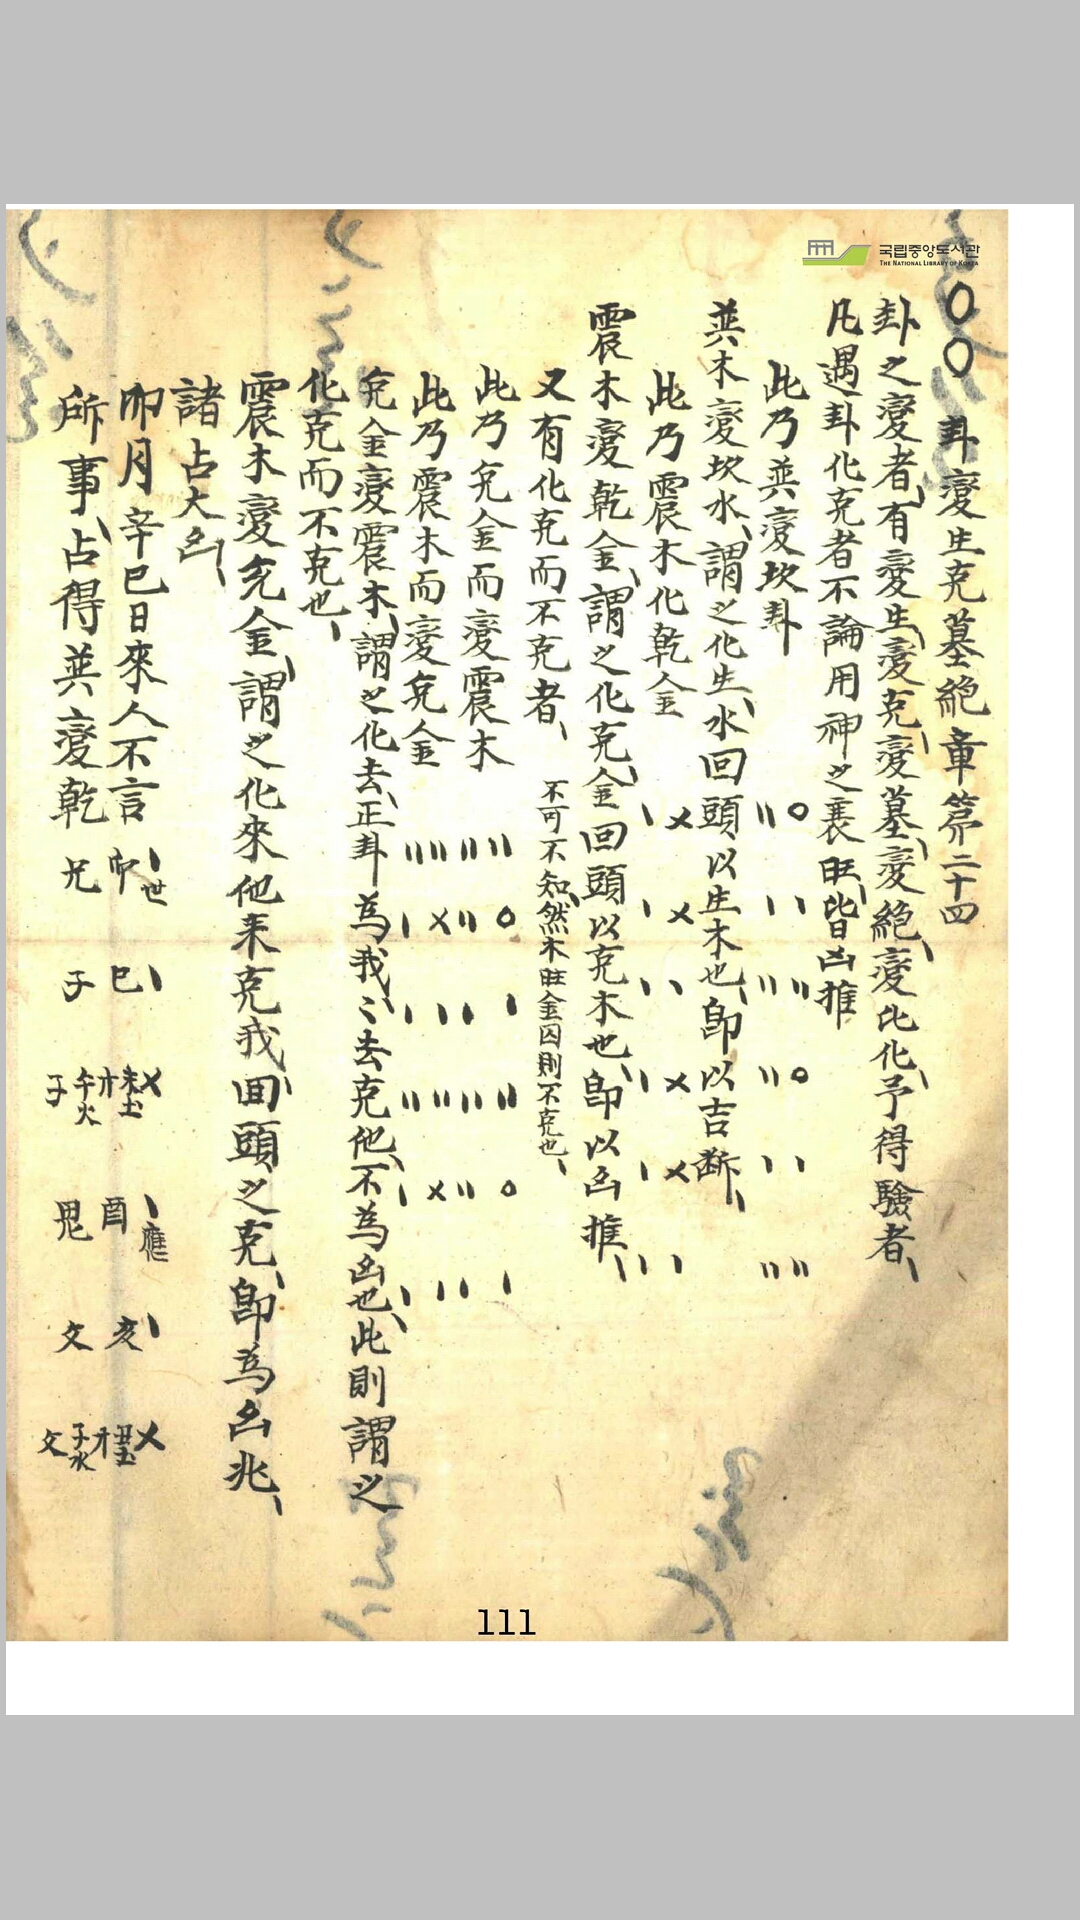 국립중앙도서관
THE NATIONAL LIBRARY OF KOREA
〇〇卦變生克墓絕章第二十四
卦之變者、有變生、變克、變墓、變絕、變比化、予得驗者、
凡遇卦化克者不論用神之衰旺、皆凶推
此乃巽變坎卦
巽木變坎水、謂之化生、水回頭以生木也、卽以吉斷、
此乃震木化乾金
震木變乾金、謂之化克、金回頭以克木也、卽以凶推、
又有化克而不克者、不可不知、然木旺金囚則不克也、
此乃兌金而變震木
此乃震木而變兌金
兌金變震木、謂之化去、正卦為我、〻去克他、不為凶也、此則謂之
化克而不克也、
震木變兌金、謂之化來他来克我、回頭之克、卽為凶兆、
諸占大凶、
卯月辛巳日來人不言
所事、占得巽變乾
世 應
兄卯 子巳 才未土 子午火 鬼酉 文亥 才丑土 文子水
111